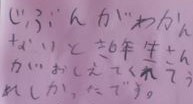 じぶんがわかん
ないとき6年生さん
がおしえてくれてう
れしかったです。